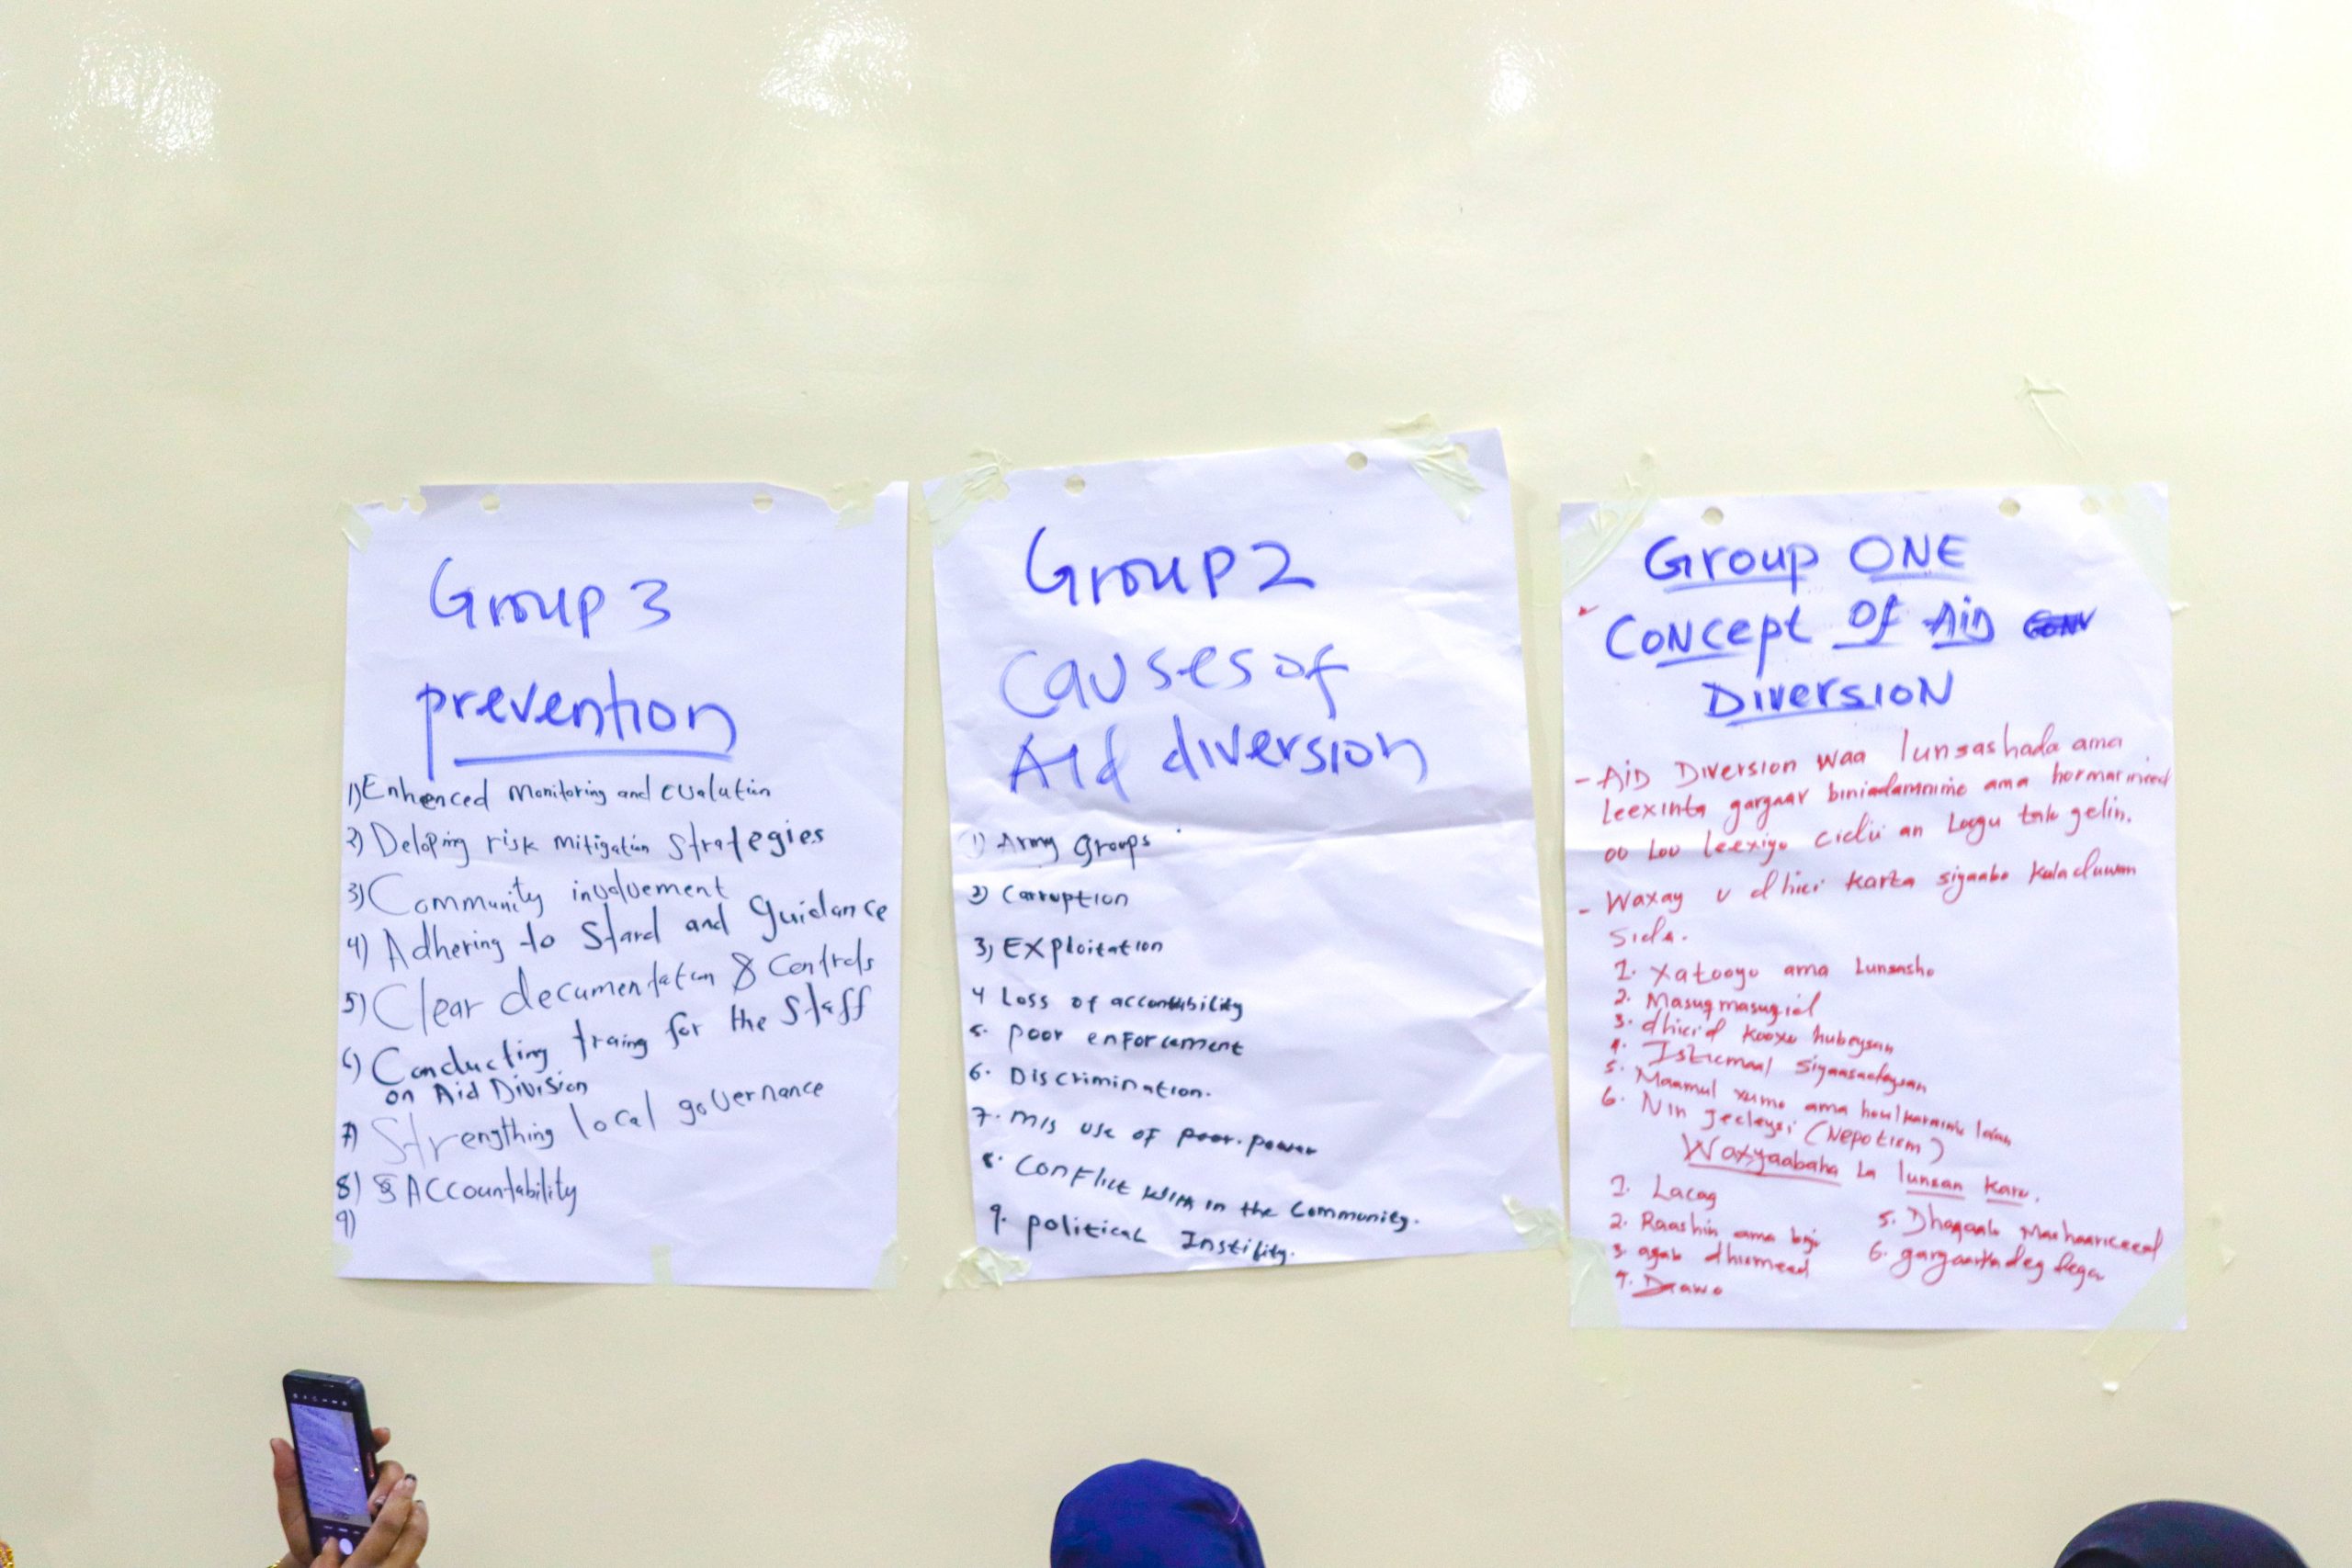 Group 3
prevention
1) Enhenced Monitoring and evalution
2) Deloping risk Mitigation Strategies
3) Community involvement
4) Adhering to Stard and guidance
5) Clear documentation & Controls
6) Conducting traing for the Staff
on Aid Division
7) Strengthing local governance
8) § ACCountability
9)
Group 2
Causes of
Aid diversion
1) Army groups
2) Corruption
3) EXploitation
4 Loss of
5. poor enforcement
6. Discrimination.
7. mis use of poor. power
8. Conflict with in the Community.
9. political Instility.
Group ONE
Concept Of AiD
Diversion
- AiD Diversion waa lunsashada ama
leexinta gargaar ama
oo Loo leexiyo cidii an Loogu tala gelin.
- Waxay u dhici karta siyaabo kala duwan
sida.
1. Xatooyo ama Lunsasho
2. Masuqmasuqid
3. dhicid kooxo hubeysan
4. Isticmaal
5. Maamul xumo ama
6. Nin jecleysi (Nepotism)
Waxyaabaha La lunsan karo.
1. Lacag
2. Raashin ama
3. agab dhismeed
4. Dawo
5. Dhaqaale
6. gargaarka deg dega